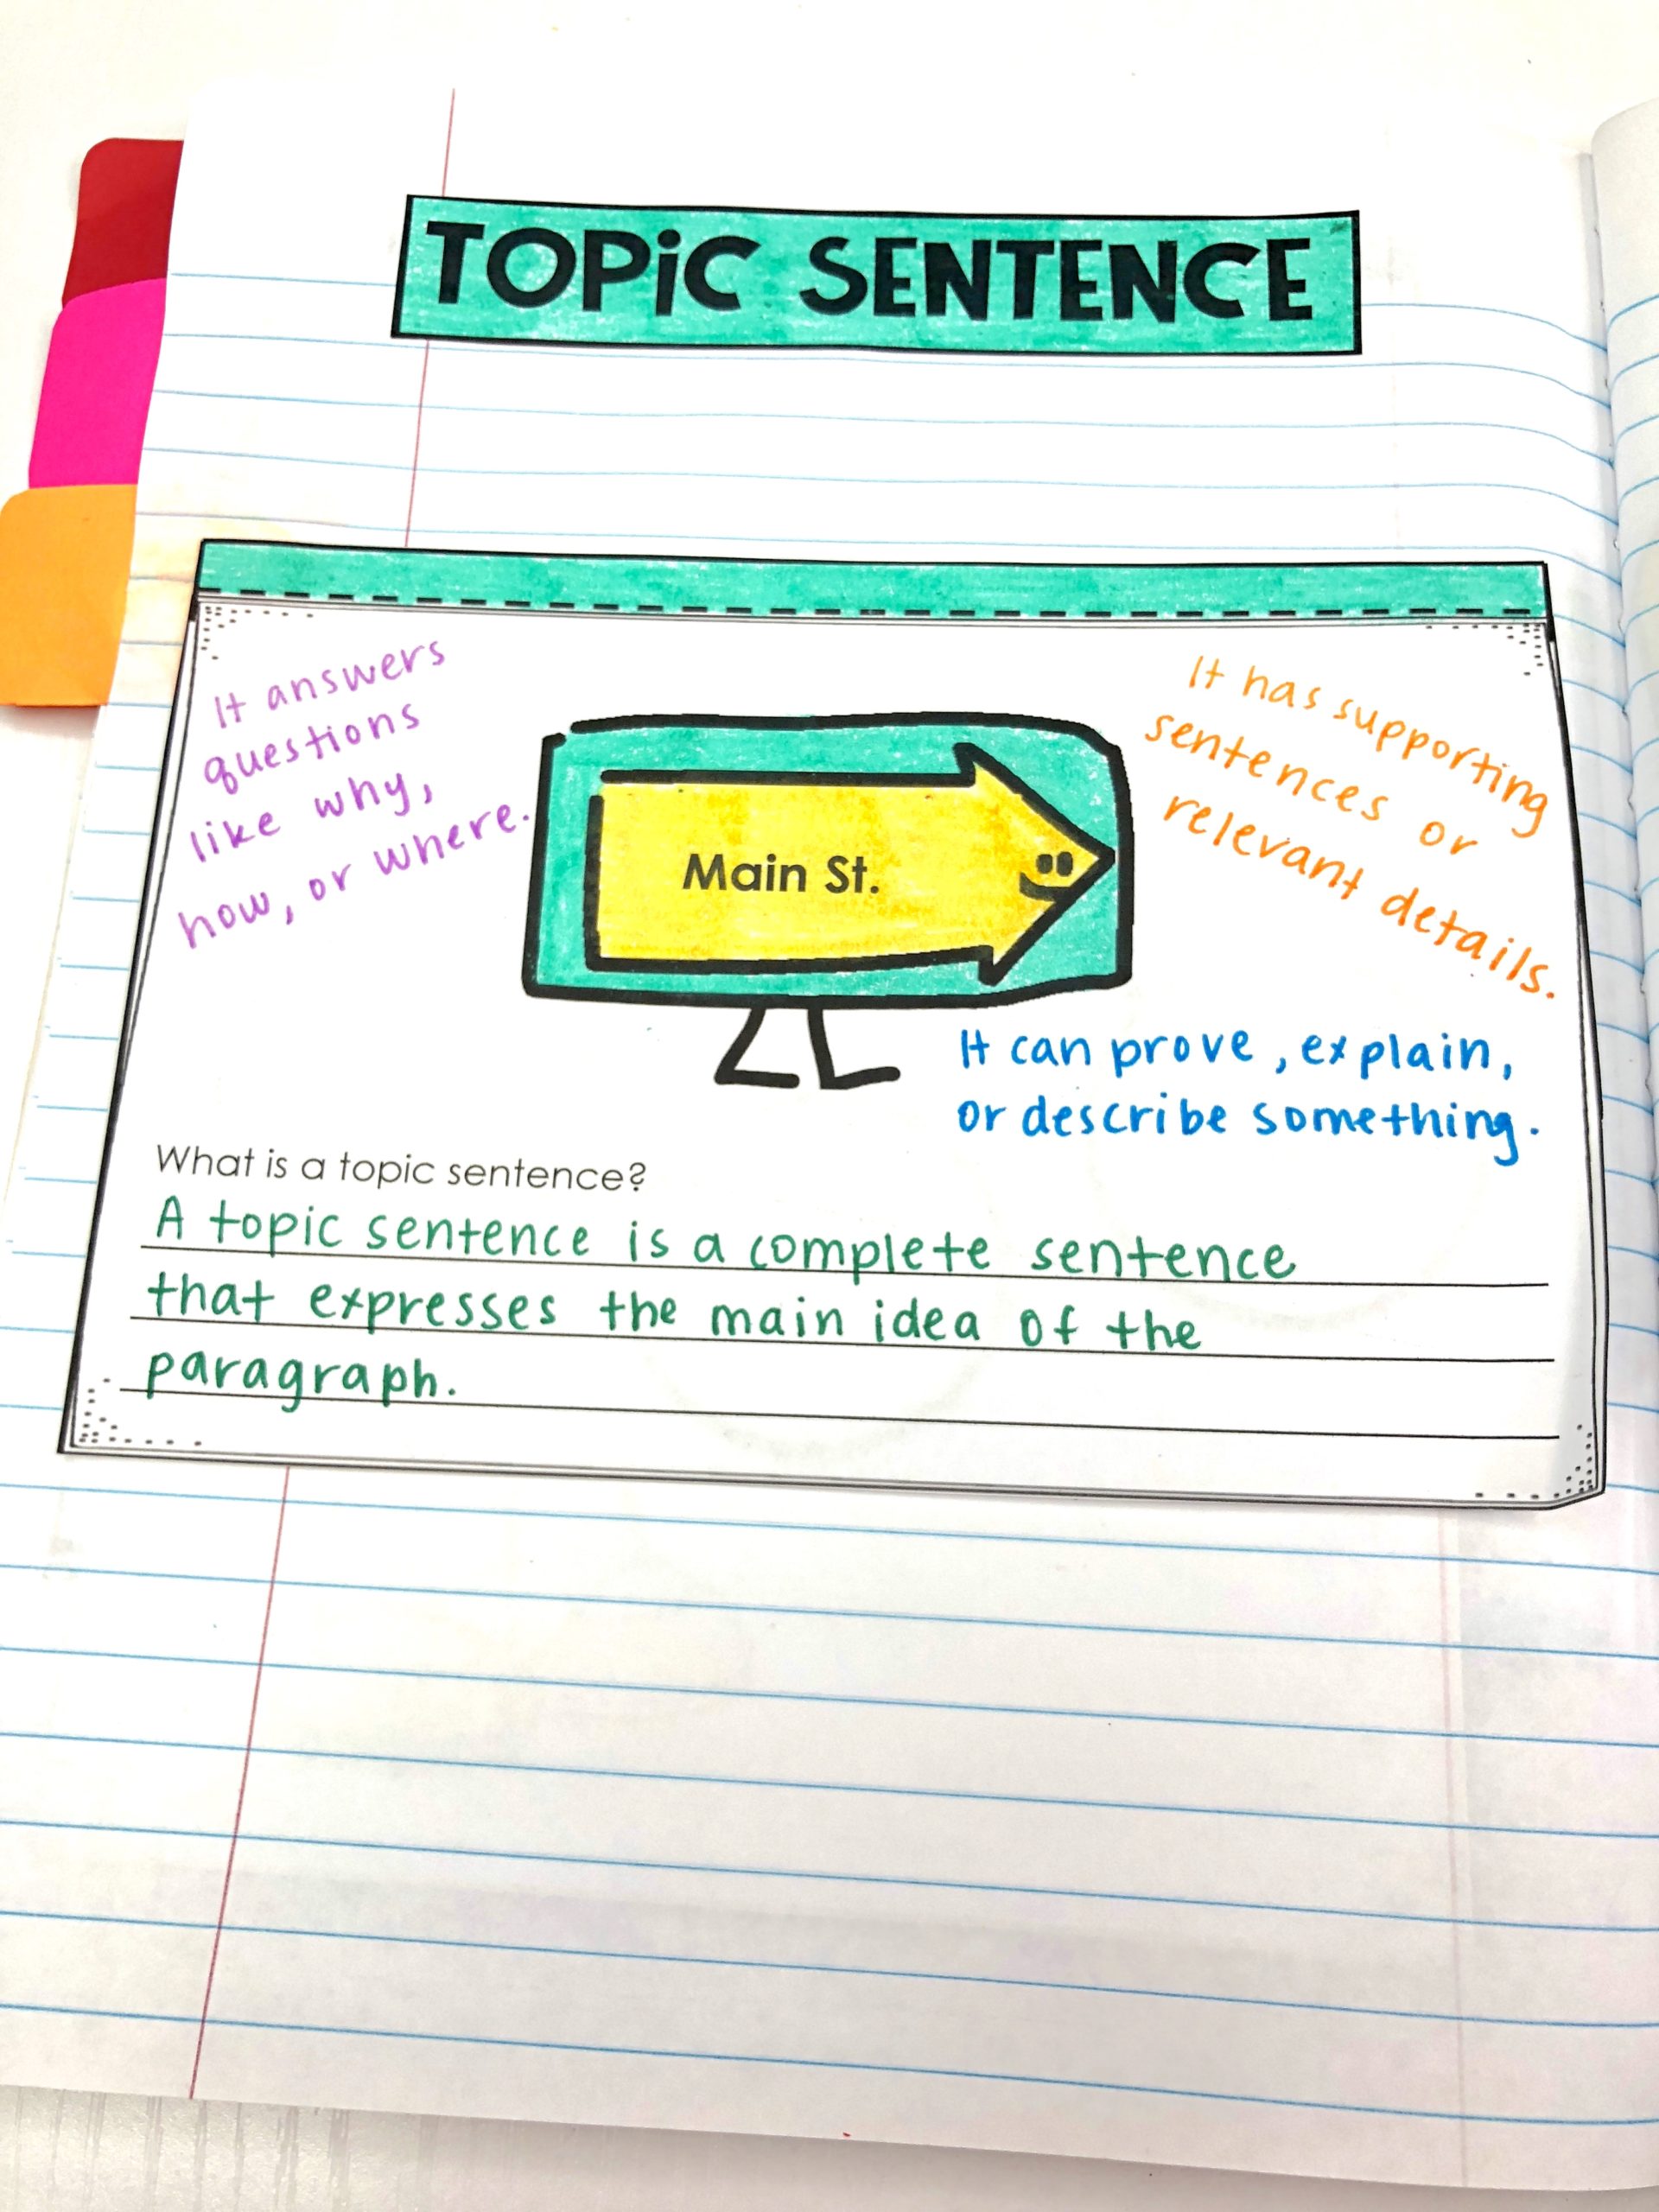 TOPiC SENTENCE
It answers
questions
like why,
how, or where.
It has supporting
sentences or
relevant details.
Main St.
It can prove, explain,
or describe something.
What is a topic sentence?
A topic sentence is a complete sentence
that expresses the main idea of the
paragraph.